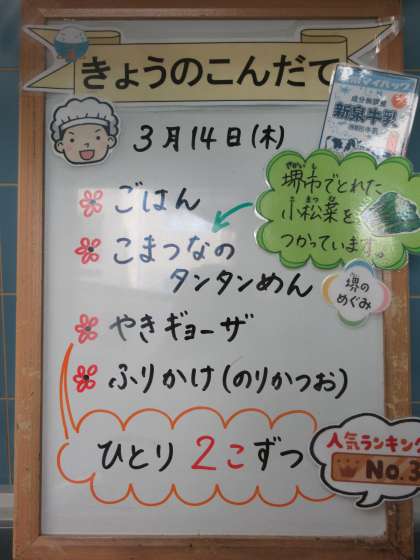 きょうのこんだて
3月14日(木)
新泉牛乳
ごはん
堺市でとれた
小松菜を
つかっています。
こまつなの
タンタンめん
堺の
めぐみ
やきギョーザ
ふりかけ(のりかつお)
ひとり 2こずつ
人気ランキング
No.3